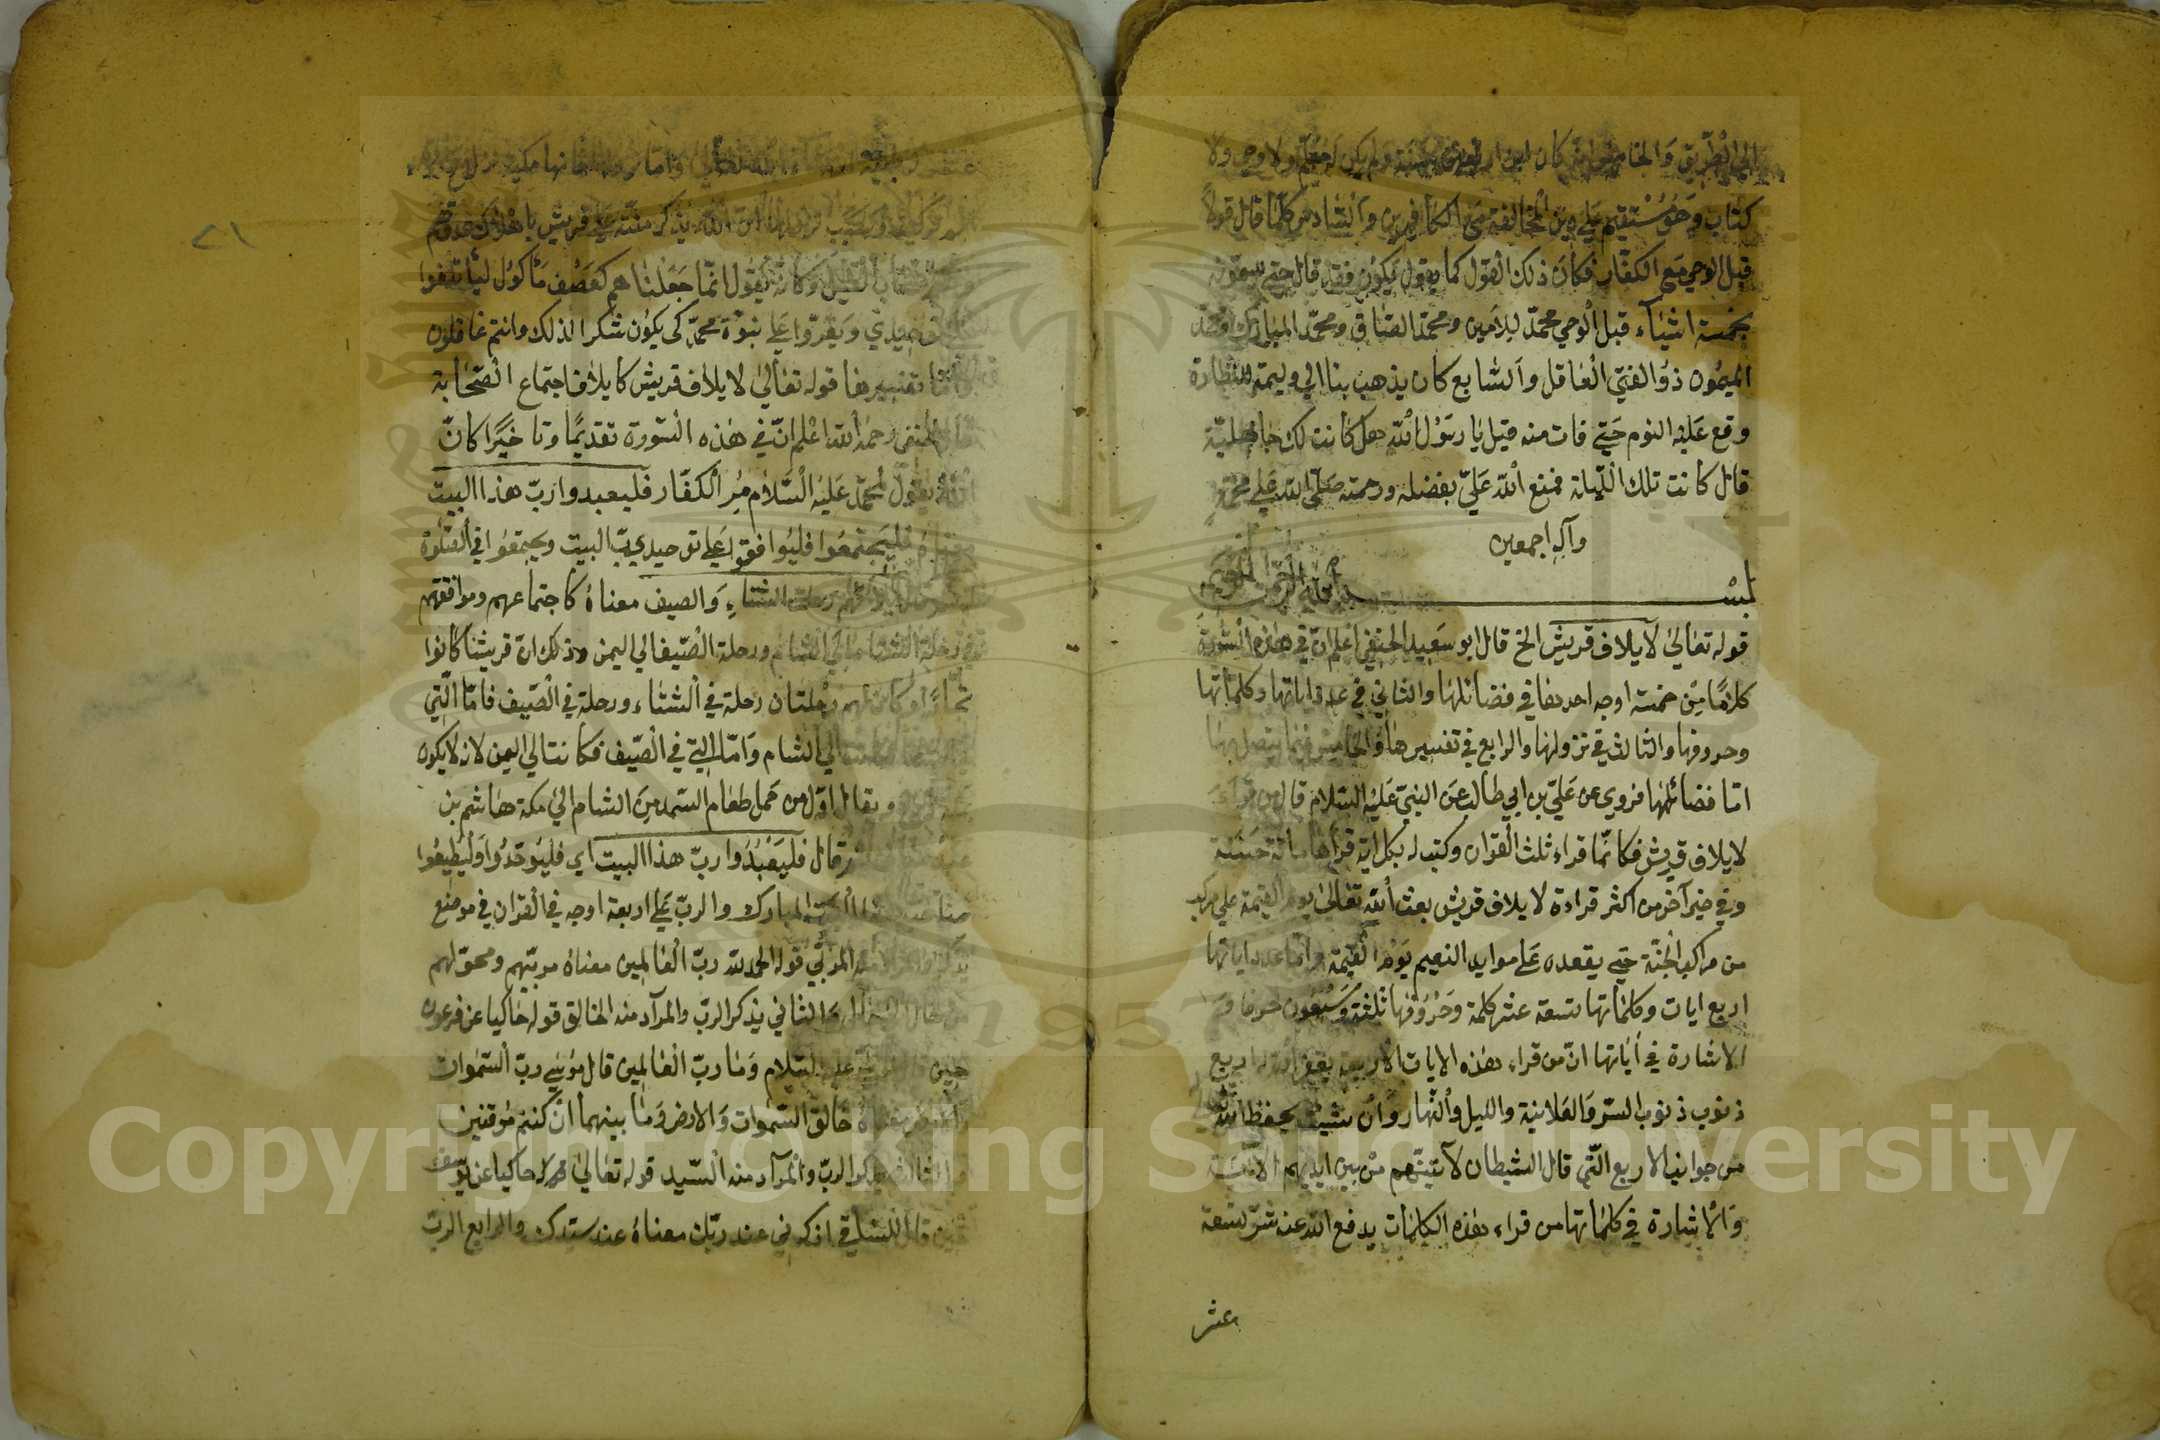 الي الطريق والخامس انه كان ابن اربعين سنة ولم يكن له معلم ولا وحي ولا
كتاب وهو مستقيم علي دين المخالفة مع الكافرين والسادس كلما قال قولا
قبل الوحي مع الكفار فكان ذلك القول كما يقول يكون فقد قال حتي سموه
بخمسة اشياء قبل الوحي محمد الامين ومحمد الصادق ومحمد المبارك ومحمد
الميمون ذو الفتي العاقل والسابع كان يذهب بنا الي وليمة للنظارة
وقع عليه النوم حتي فات منه قيل يا رسول الله هل كانت لك جاهلية
قال كانت تلك الليلة فمنع الله علي بفضله ورحمته صلي الله علي محمد
وآله اجمعين
بسم الله الرحمن الرحيم
قوله تعالي لايلاف قريش الخ قال ابو سعيد الحنفي اعلم ان في هذه السورة
كلاما من خمسة اوجه احدها في فضائلها والثاني في عدد اياتها وكلماتها
وحروفها والثالث في نزولها والرابع في تفسيرها والخامس فيما يتصل بها
اما فضائلها فروي عن علي بن ابي طالب عن النبي عليه السلام قال من قراء
لايلاف قريش فكانما قراء ثلث القران وكتب له بكل اية قرأها مائة حسنة
وفي خبر آخر من اكثر قراءة لايلاف قريش بعث الله تعالي يوم القيمة علي مركب
من مراكب الجنة حتي يقعده علي موايد النعيم يوم القيمة واما عدد اياتها
اربع ايات وكلماتها تسعة عشر كلمة وحروفها ثلثة وسبعون حرفا و
الاشارة في اياتها ان من قراء هذه الايات الاربعة يغفر الله له اربع
ذنوب ذنوب السر والعلانية والليل والنهار وان شئت يحفظ الله تعالي
من جوانب الاربع التي قال الشيطان لآتينهم من بين ايديهم الآية
والاشارة في كلماتها من قراء هذه الكلمات يدفع الله عنه شر تسعة
عشر
٢١
واما نزولها فانها مكية
الله يذكر منته علي قريش باهلاك عدوهم
الفيل وكانه يقول انما جعلناهم كعصف مأكول ليأتلفوا
توحيدي ويقروا علي نبوة محمد كي يكون شكرا لذلك وانتم غافلون
واما تفسيرها قوله تعالي لايلاف قريش كايلاف اجتماع الصحابة
قال الحنفي رحمه الله اعلم ان في هذه السورة تقديما وتاخيرا كان
الله يقول لمحمد عليه السلام مر الكفار فليعبدوا رب هذا البيت
معناه فليجتمعوا فليوافقوا علي توحيدي رب البيت ويجتمعوا في الصلوة
رحلة الشتاء والصيف معناه كاجتماعهم وموافقتهم
في رحلة الشتاء الي الشام ورحلة الصيف الي اليمن وذلك ان قريشا كانوا
تجارا وكان لهم رحلتان رحلة في الشتاء ورحلة في الصيف فاما التي
الي الشام واما التي في الصيف فكانت الي اليمن لانه لا يكون
ويقال اول من حمل طعام السمد من الشام الي مكة هاشم بن
قال فليعبدوا رب هذا البيت اي فليوحدوا وليطيعوا
المبارك والرب علي اربعة اوجه في القران في موضع
المربي قوله الحمد لله رب العالمين معناه مربيهم ومحولهم
والثاني يذكر الرب والمراد منه الخالق قوله حاكيا عن فرعون
حين عليه السلام وما رب العالمين قال موسي رب السموات
معناه خالق السموات والارض وما بينهما ان كنتم موقنين
والثالث يذكر الرب والمراد منه السيد قوله تعالي حاكيا عن يوسف
حين قال للساقي اذكرني عند ربك معناه عند سيدك والرابع الرب
Copyright © King Saud University
1957